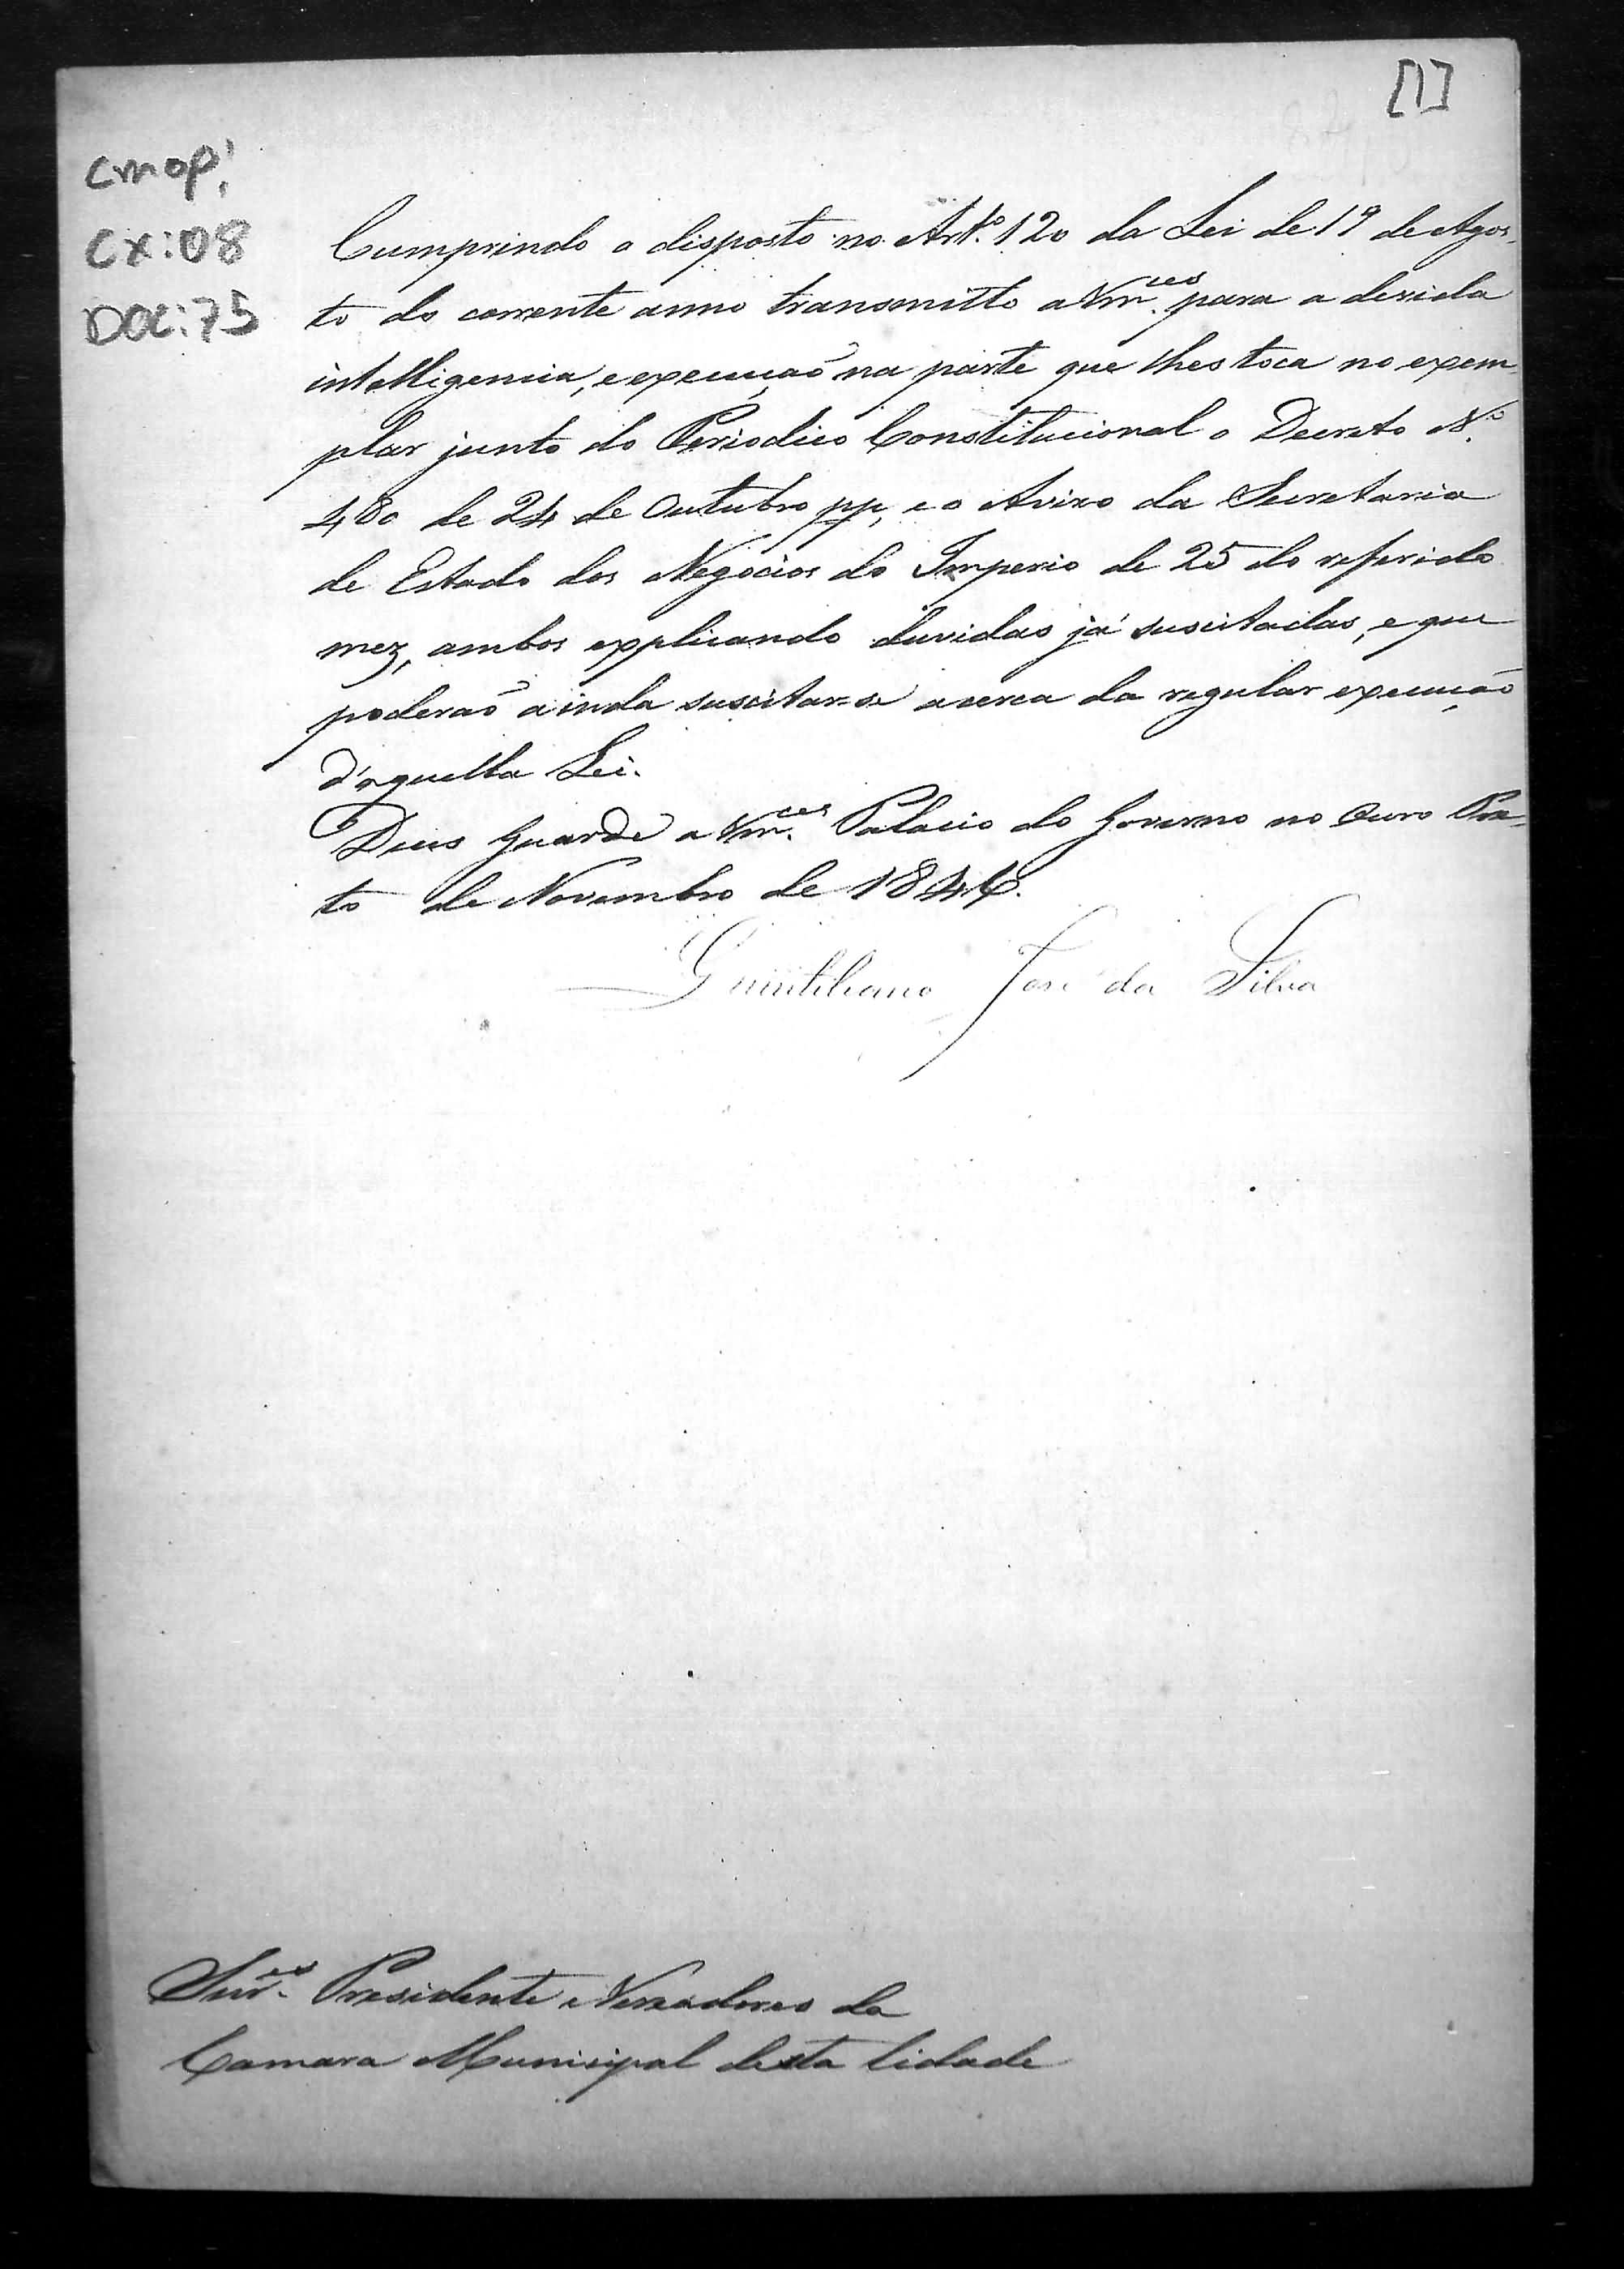 [1]
CMOP,
CX:08
DOC:75
Cumprindo o disposto no Art.º 120 da Lei de 19 de Agos-
to do corrente anno transmitto a Vm.ces para a devida
intelligencia, e execução na parte que lhes toca no exem-
plar junto do Periodico Constitucional o Decreto N.º
480 de 24 de Outubro pp, e o Avizo da Secretaria
de Estado dos Negocios do Imperio de 25 do referido
mez, ambos explicando duvidas já suscitadas, e que
poderaõ ainda suscitar-se acerca da regular execução
d'aquella Lei.
Deus Guarde a Vm.ces Palacio do Governo no Ouro Pre-
to de Novembro de 1846.
Quintiliano José da Silva
Snr.es Presidente e Vereadores da
Camara Municipal desta Cidade